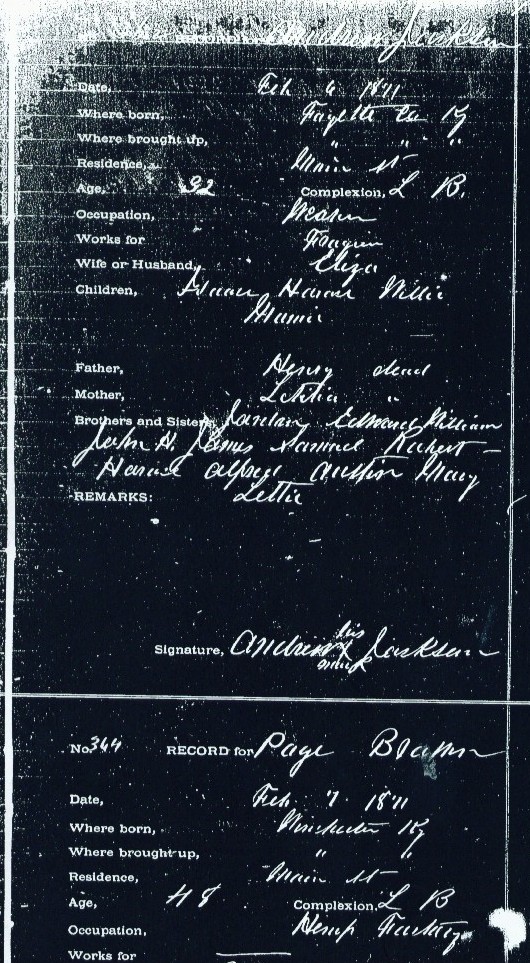 RECORD for Andrew Jackson
Date, Feb 6 1871
Where born, Fayette Co Ky
Where brought up, " " "
Residence, Main st
Age, 32 Complexion, L B.
Occupation,
Works for
Wife or Husband, Eliza
Children, Isaac Harvie Willie
Mamie
Father, Henry dead
Mother, Letitia "
Brothers and Sisters, Edward William
John H. James Samuel Robert –
Alfred Mary
REMARKS: Lettie
Signature, Andrew his x mark Jackson
No 364 RECORD for Page Brown
Date, Feb 7 1871
Where born, Winchester Ky
Where brought up, " "
Residence, Main st
Age, 48 Complexion, L B
Occupation, Hemp Factory
Works for